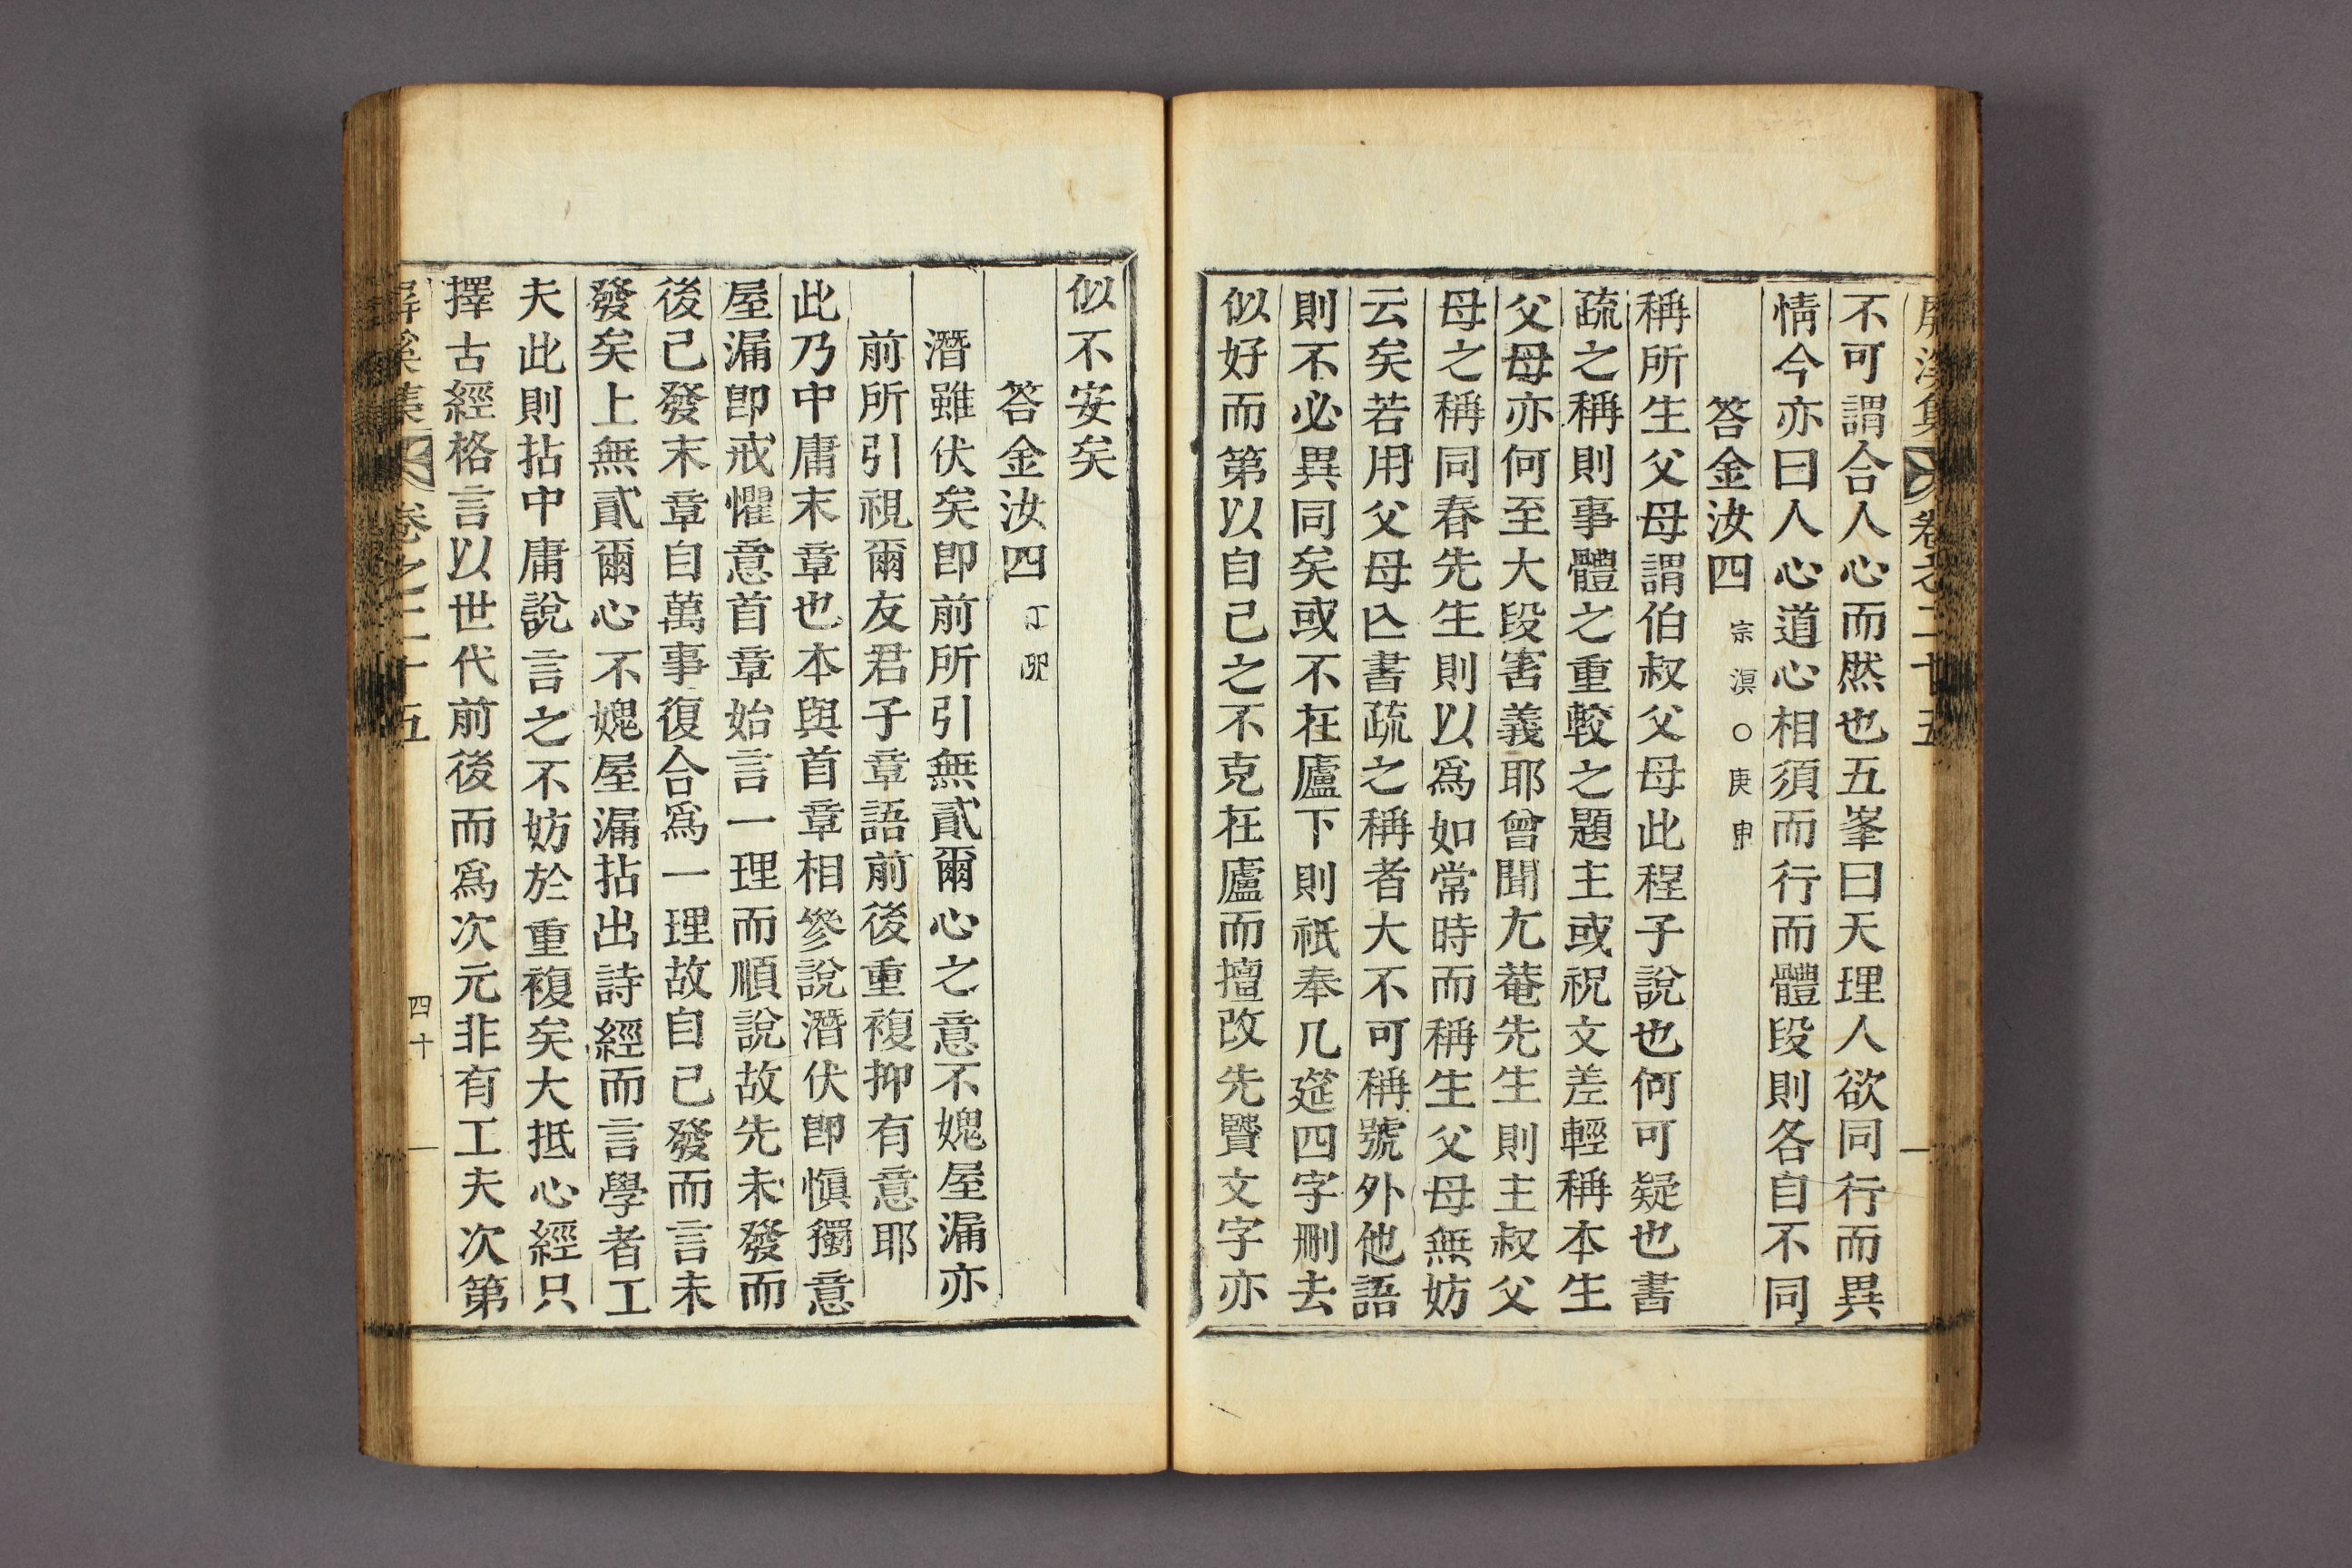 屛溪集 卷之二十五
不可謂合人心而然也五峯曰天理人欲同行而異
情今亦曰人心道心相須而行而體段則各自不同
答金汝四 宗溟○庚申
稱所生父母謂伯叔父母此程子說也何可疑也書
疏之稱則事體之重較之題主或祝文差輕稱本生
父母亦何至大段害義耶曾聞尤菴先生則主叔父
母之稱同春先生則以爲如常時而稱生父母無妨
云矣若用父母亾書疏之稱者大不可稱號外他語
則不必異同矣或不在廬下則祇奉几筵四字刪去
似好而第以自己之不克在廬而擅改先賢文字亦
似不安矣
答金汝四 丁卯
潛雖伏矣卽前所引無貳爾心之意不媿屋漏亦
前所引視爾友君子章語前後重複抑有意耶
此乃中庸末章也本與首章相參說潛伏卽愼獨意
屋漏卽戒懼意首章始言一理而順說故先未發而
後已發末章自萬事復合爲一理故自已發而言未
發矣上無貳爾心不媿屋漏拈出詩經而言學者工
夫此則拈中庸說言之不妨於重複矣大抵心經只
擇古經格言以世代前後而爲次元非有工夫次第
屛溪集 卷之二十五 四十